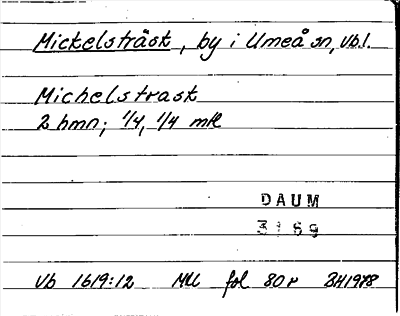 Mickelsträsk, by i Umeå sn, Vb l.
Michelstrask
2 hmn; 1/4, 1/4 mtl
DAUM
3169
Vb 1619:12 Mtl fol 80 r BH1978